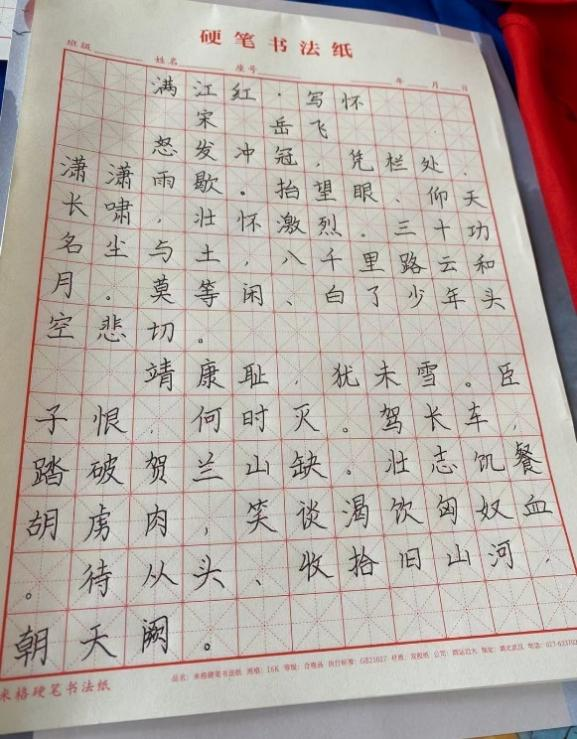 硬笔书法纸
班级 姓名 座号 年 月 日
满江红·写怀
宋 岳飞
怒发冲冠,凭栏处、
潇潇雨歇。抬望眼、仰天
长啸,壮怀激烈。三十功
名尘与土,八千里路云和
月。莫等闲、白了少年头
空悲切。
靖康耻,犹未雪。臣
子恨,何时灭。驾长车,
踏破贺兰山缺。壮志饥餐
胡虏肉,笑谈渴饮匈奴血
。待从头、收拾旧山河,
朝天阙。
米格硬笔书法纸
品名:米格硬笔书法纸 规格:16K 等级:合格品